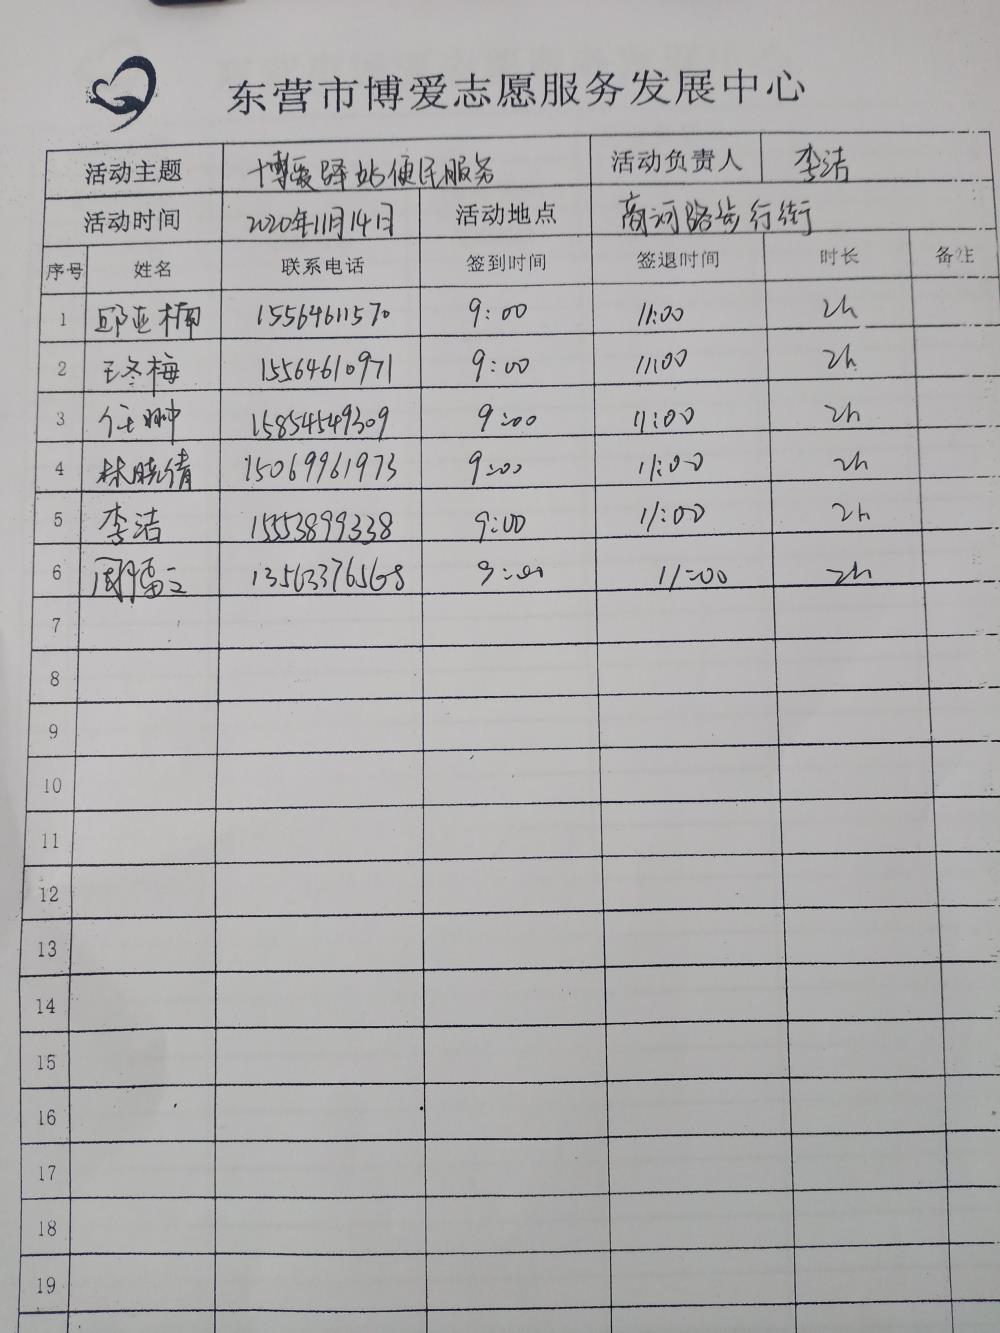 东营市博爱志愿服务发展中心
活动主题 博爱驿站便民服务 活动负责人 李洁
活动时间 2020年11月14日 活动地点 商河路步行街
序号 姓名 联系电话 签到时间 签退时间 时长 备注
1 邱亚楠 15564611570 9:00 11:00 2h
2 王冬梅 15564610971 9:00 11:00 2h
3 任翀 15854549309 9:00 11:00 2h
4 林晓倩 15069961973 9:00 11:00 2h
5 李洁 15553899338 9:00 11:00 2h
6 13563376568 9:00 11:00 2h
7
8
9
10
11
12
13
14
15
16
17
18
19